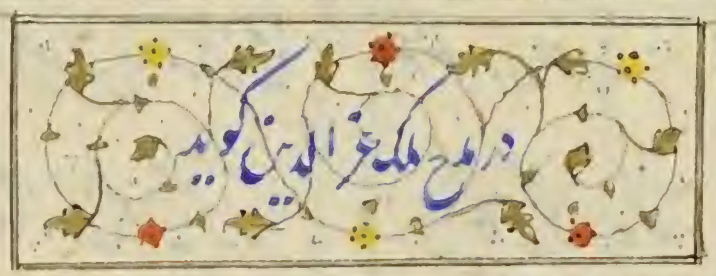 در مدح ملک عز الدین گوید